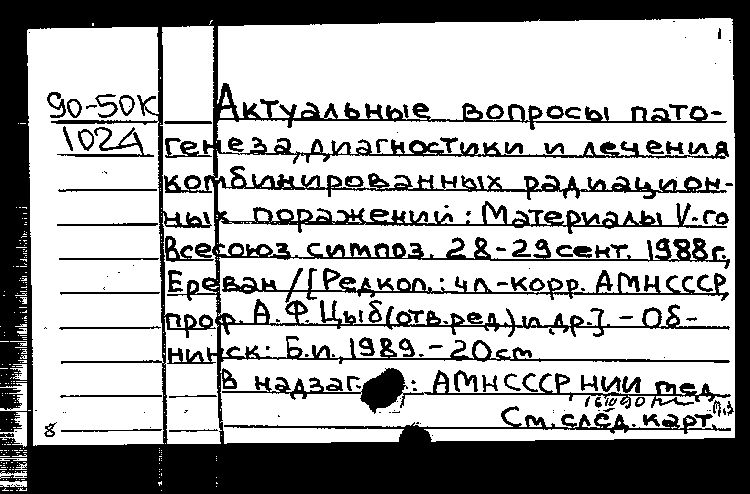 1
90-50К Актуальные вопросы пато-
1024 генеза, диагностики и лечения
комбинированных радиацион-
ных поражений: Материалы V-го
Всесоюз. симпоз. 28-29 сент. 1988г.,
Ереван / [Редкол.: чл.-корр. АМНСССР,
проф. А.Ф. Цыб (отв.ред.) и др.]. - Об-
нинск: Б.и., 1989. - 20 см
В надзаг.: АМНСССР, НИИ мед.
См. след. карт.
8